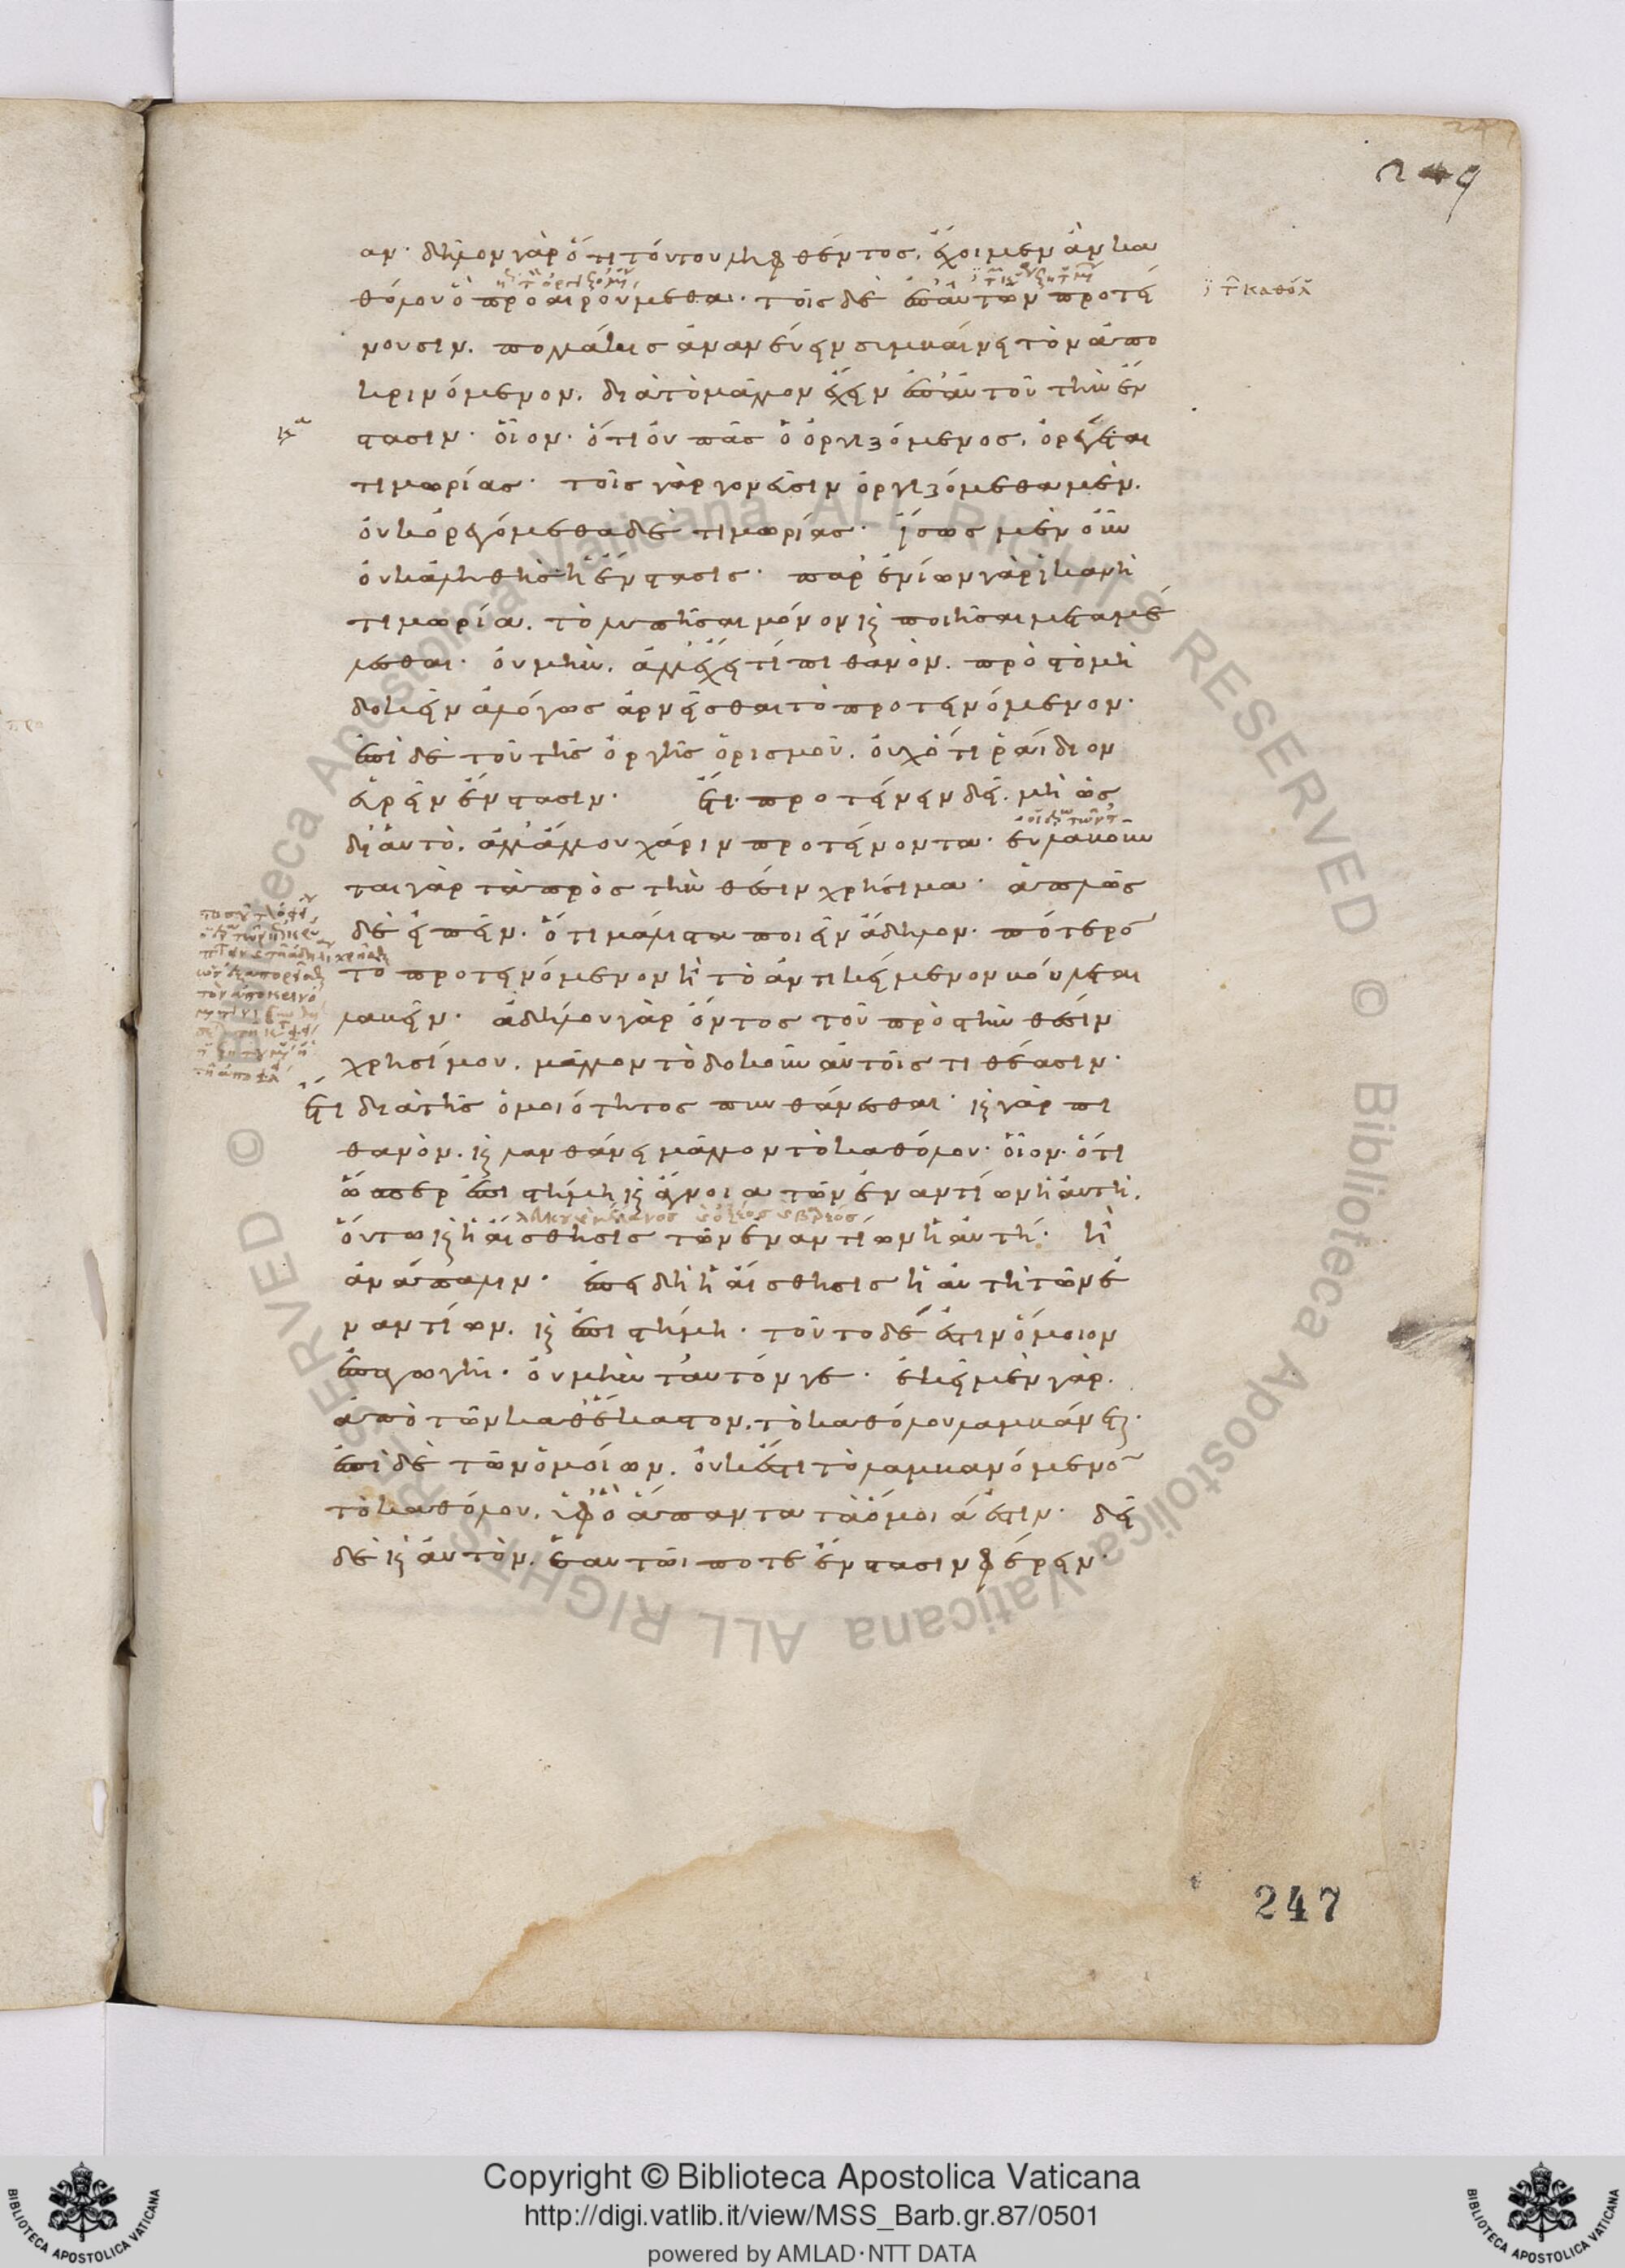 249
αν· δῆλον γὰρ ὅτι τούτου ληφθέντος, ἔχοιμεν ἂν κα
θόλου ὃ προαιρούμεθα· τοῖς δὲ ἐπ' αὐτῶν προτεί
ϊ τ̅ καθόλ
νουσιν, πολλάκις ἀνανεύειν συμβαίνει τὸν ἀπο
κρινόμενον, διὰ τὸ μᾶλλον ἔχειν ἐπ' αὐτοῦ τὴν ἔν
στασιν· οἷον· ὅτι οὐ πᾶς ὁ ὀργιζόμενος, ὀρέγεται
τιμωρίας· τοῖς γὰρ γονεῦσιν ὀργιζόμεθα μὲν,
οὐκ ὀρεγόμεθα δὲ τιμωρίας· ἴσως μὲν οὖν
οὐκ ἀληθὴς ἡ ἔνστασις· παρ' ἐνίων γὰρ ἱκανὴ
τιμωρία, τὸ λυπῆσαι μόνον καὶ ποιῆσαι μεταμέ
λεσθαι· οὐ μὴν, ἀλλ' ἔχει τι πιθανὸν, πρὸς τὸ μὴ
δοκεῖν ἀλόγως ἀρνεῖσθαι τὸ προτεινόμενον·
ἐπὶ δὲ τοῦ τῆς ὀργῆς ὁρισμοῦ, οὐχ ὅτι ῥάιδιον
εὑρεῖν ἔνστασιν· ἔτι· προτείνειν δεῖ, μὴ ὡς
δι' αὐτὸ, ἀλλ' ἄλλου χάριν προτείνοντα· εὐλαβοῦν
ται γὰρ τὰ πρὸς τὴν θέσιν χρήσιμα· ἁπλῶς
δὲ εἰπεῖν, ὅτι μάλιστα ποιεῖν ἄδηλον, πότερο̅
τὸ προτεινόμενον ἢ τὸ ἀντικείμενον βούλεται
λαβεῖν· ἀδήλου γὰρ ὄντος τοῦ πρὸς τὴν θέσιν
χρησίμου, μᾶλλον τὸ δοκοῦν αὐτοῖς τιθέασιν·
ἔτι διὰ τῆς ὁμοιότητος πυνθάνεσθαι· καὶ γὰρ πι
θανὸν, καὶ λανθάνει μᾶλλον τὸ καθόλου· οἷον· ὅτι
ὥσπερ ἐπιστήμη καὶ ἄγνοια τῶν ἐναντίων ἡ αὐτὴ,
οὕτω καὶ ἡ αἴσθησις τῶν ἐναντίων ἡ αὐτή· ἢ
ἀνάπαλιν· ἐπεὶ δὴ ἡ αἴσθησις ἡ αὐτὴ τῶν ἐ
ναντίων, καὶ ἐπιστήμη· τοῦτο δέ ἐστιν ὅμοιον
ἐπαγωγῆι· οὐ μὴν ταυτόν γε· ἐκεῖ μὲν γὰρ,
ἀπὸ τῶν καθέκαστον, τὸ καθόλου λαμβάνεται·
ἐπὶ δὲ τῶν ὁμοίων, οὐκ ἔστι τὸ λαμβανόμενο̅
τὸ καθόλου, ὑφ' ὃ ἅπαντα τὰ ὅμοιά ἐστιν· δεῖ
δὲ καὶ αὐτὸν, ἑαυτῶι ποτε ἔνστασιν φέρειν·
247
Copyright © Biblioteca Apostolica Vaticana
http://digi.vatlib.it/view/MSS_Barb.gr.87/0501
powered by AMLAD·NTT DATA
BIBLIOTECA APOSTOLICA VATICANA
BIBLIOTECA APOSTOLICA VATICANA